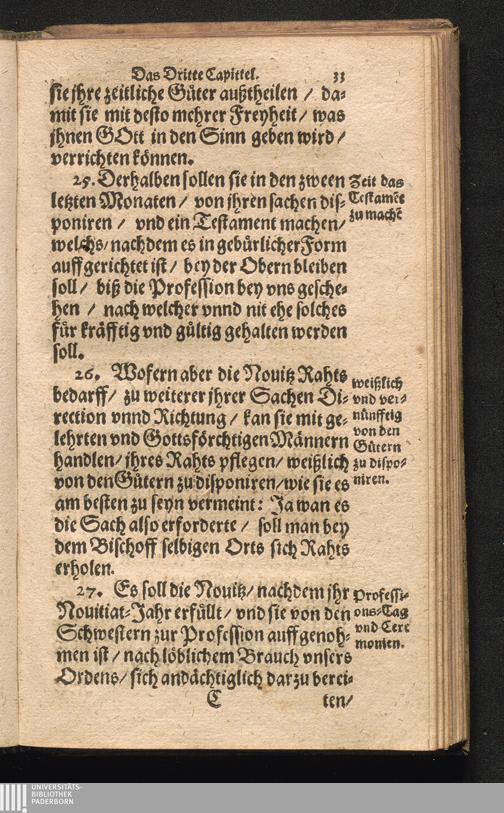 Das Dritte Capittel. 33
sie jhre zeitliche Güter außtheilen / da-
mit sie mit desto mehrer Freyheit / was
jhnen GOtt in den Sinn geben wird /
verrichten können.
25. Derhalben sollen sie in den zween
letzten Monaten / von jhren sachen dis-
poniren / vnd ein Testament machen /
welchs / nachdem es in gebürlicher Form
auffgerichtet ist / bey der Obern bleiben
soll / biß die Profession bey vns gesche-
hen / nach welcher vnnd nit ehe solches
für kräfftig vnd gültig gehalten werden
soll.
Zeit das
Testamēt
zu machē
26. Wofern aber die Nouitz Rahts
bedarff / zu weiterer jhrer Sachen Di-
rection vnnd Richtung / kan sie mit ge-
lehrten vnd Gottsförchtigen Männern
handlen / jhres Rahts pflegen / weißlich
von den Gütern zu disponiren / wie sie es
am besten zu seyn vermeint: Ja wan es
die Sach also erforderte / soll man bey
dem Bischoff selbigen Orts sich Rahts
erholen.
weißlich
vnd ver-
nünfftig
von den
Gütern
zu dispo-
niren.
27. Es soll die Nouitz / nachdem jhr
Nouitiat-Jahr erfüllt / vnd sie von den
Schwestern zur Profession auffgenoh-
men ist / nach löblichem Brauch vnsers
Ordens / sich andächtiglich darzu berei-
Professi-
ons-Tag
vnd Cere
monien.
C ten /
UNIVERSITÄTS-
BIBLIOTHEK
PADERBORN